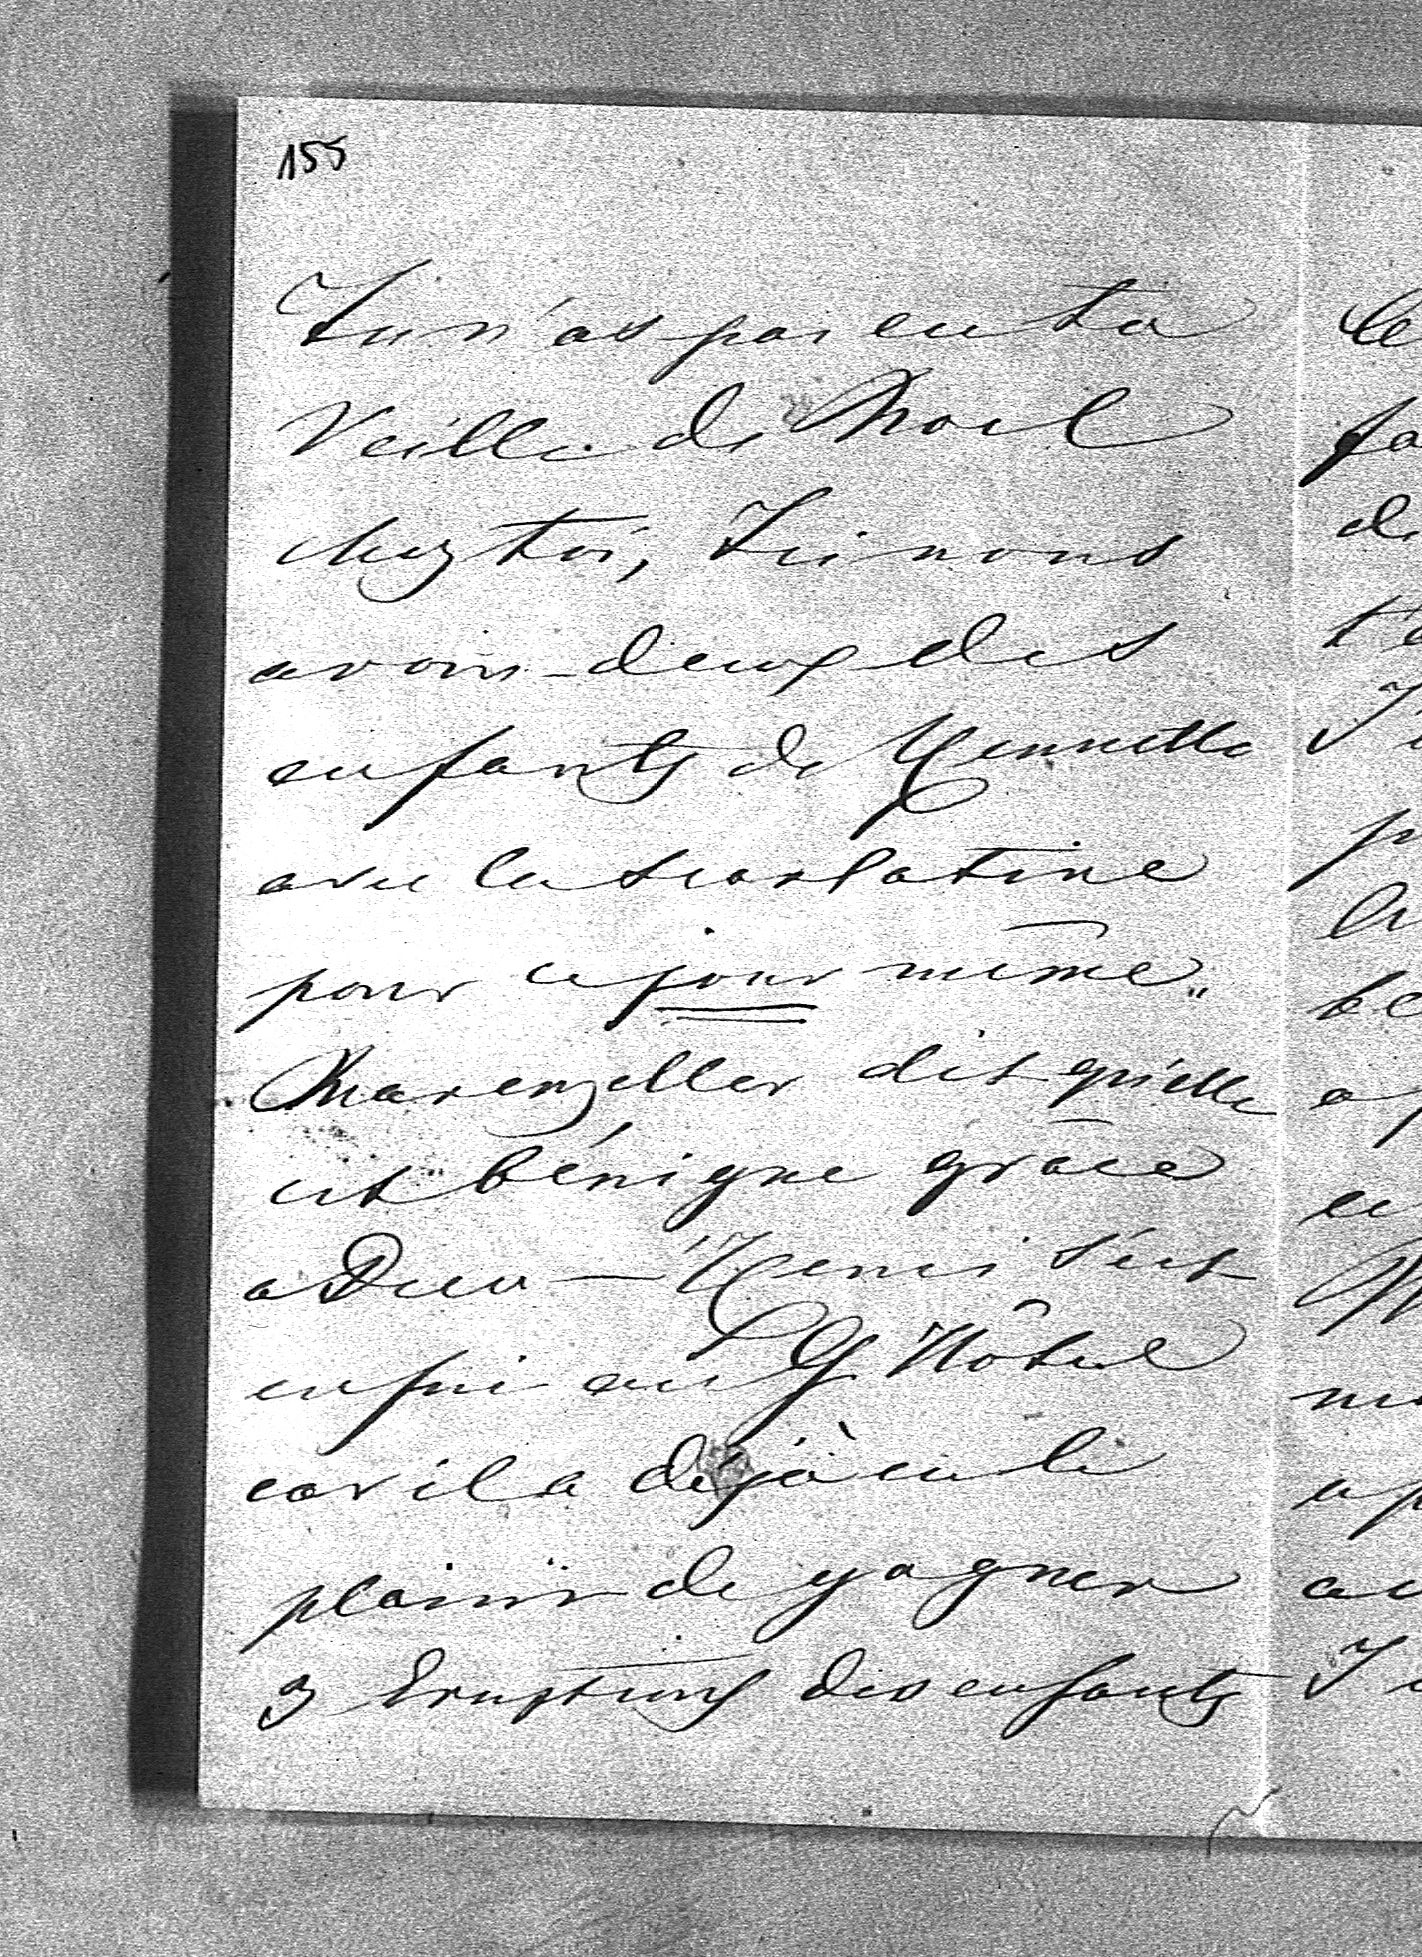 155
Tu n'as pas eu ta
Veille de Noel
chez toi, Ici nous
avons deux des
enfants de Hennette
avec la scarlatine
pour ce jour même..
Marenzeller dit qu'elle
est bénigne grâce
a Dieu — Henri s'est
enfui au G Hôtel
car il a déjà eu le
plaisir de gagner
3 Eruptions des enfants